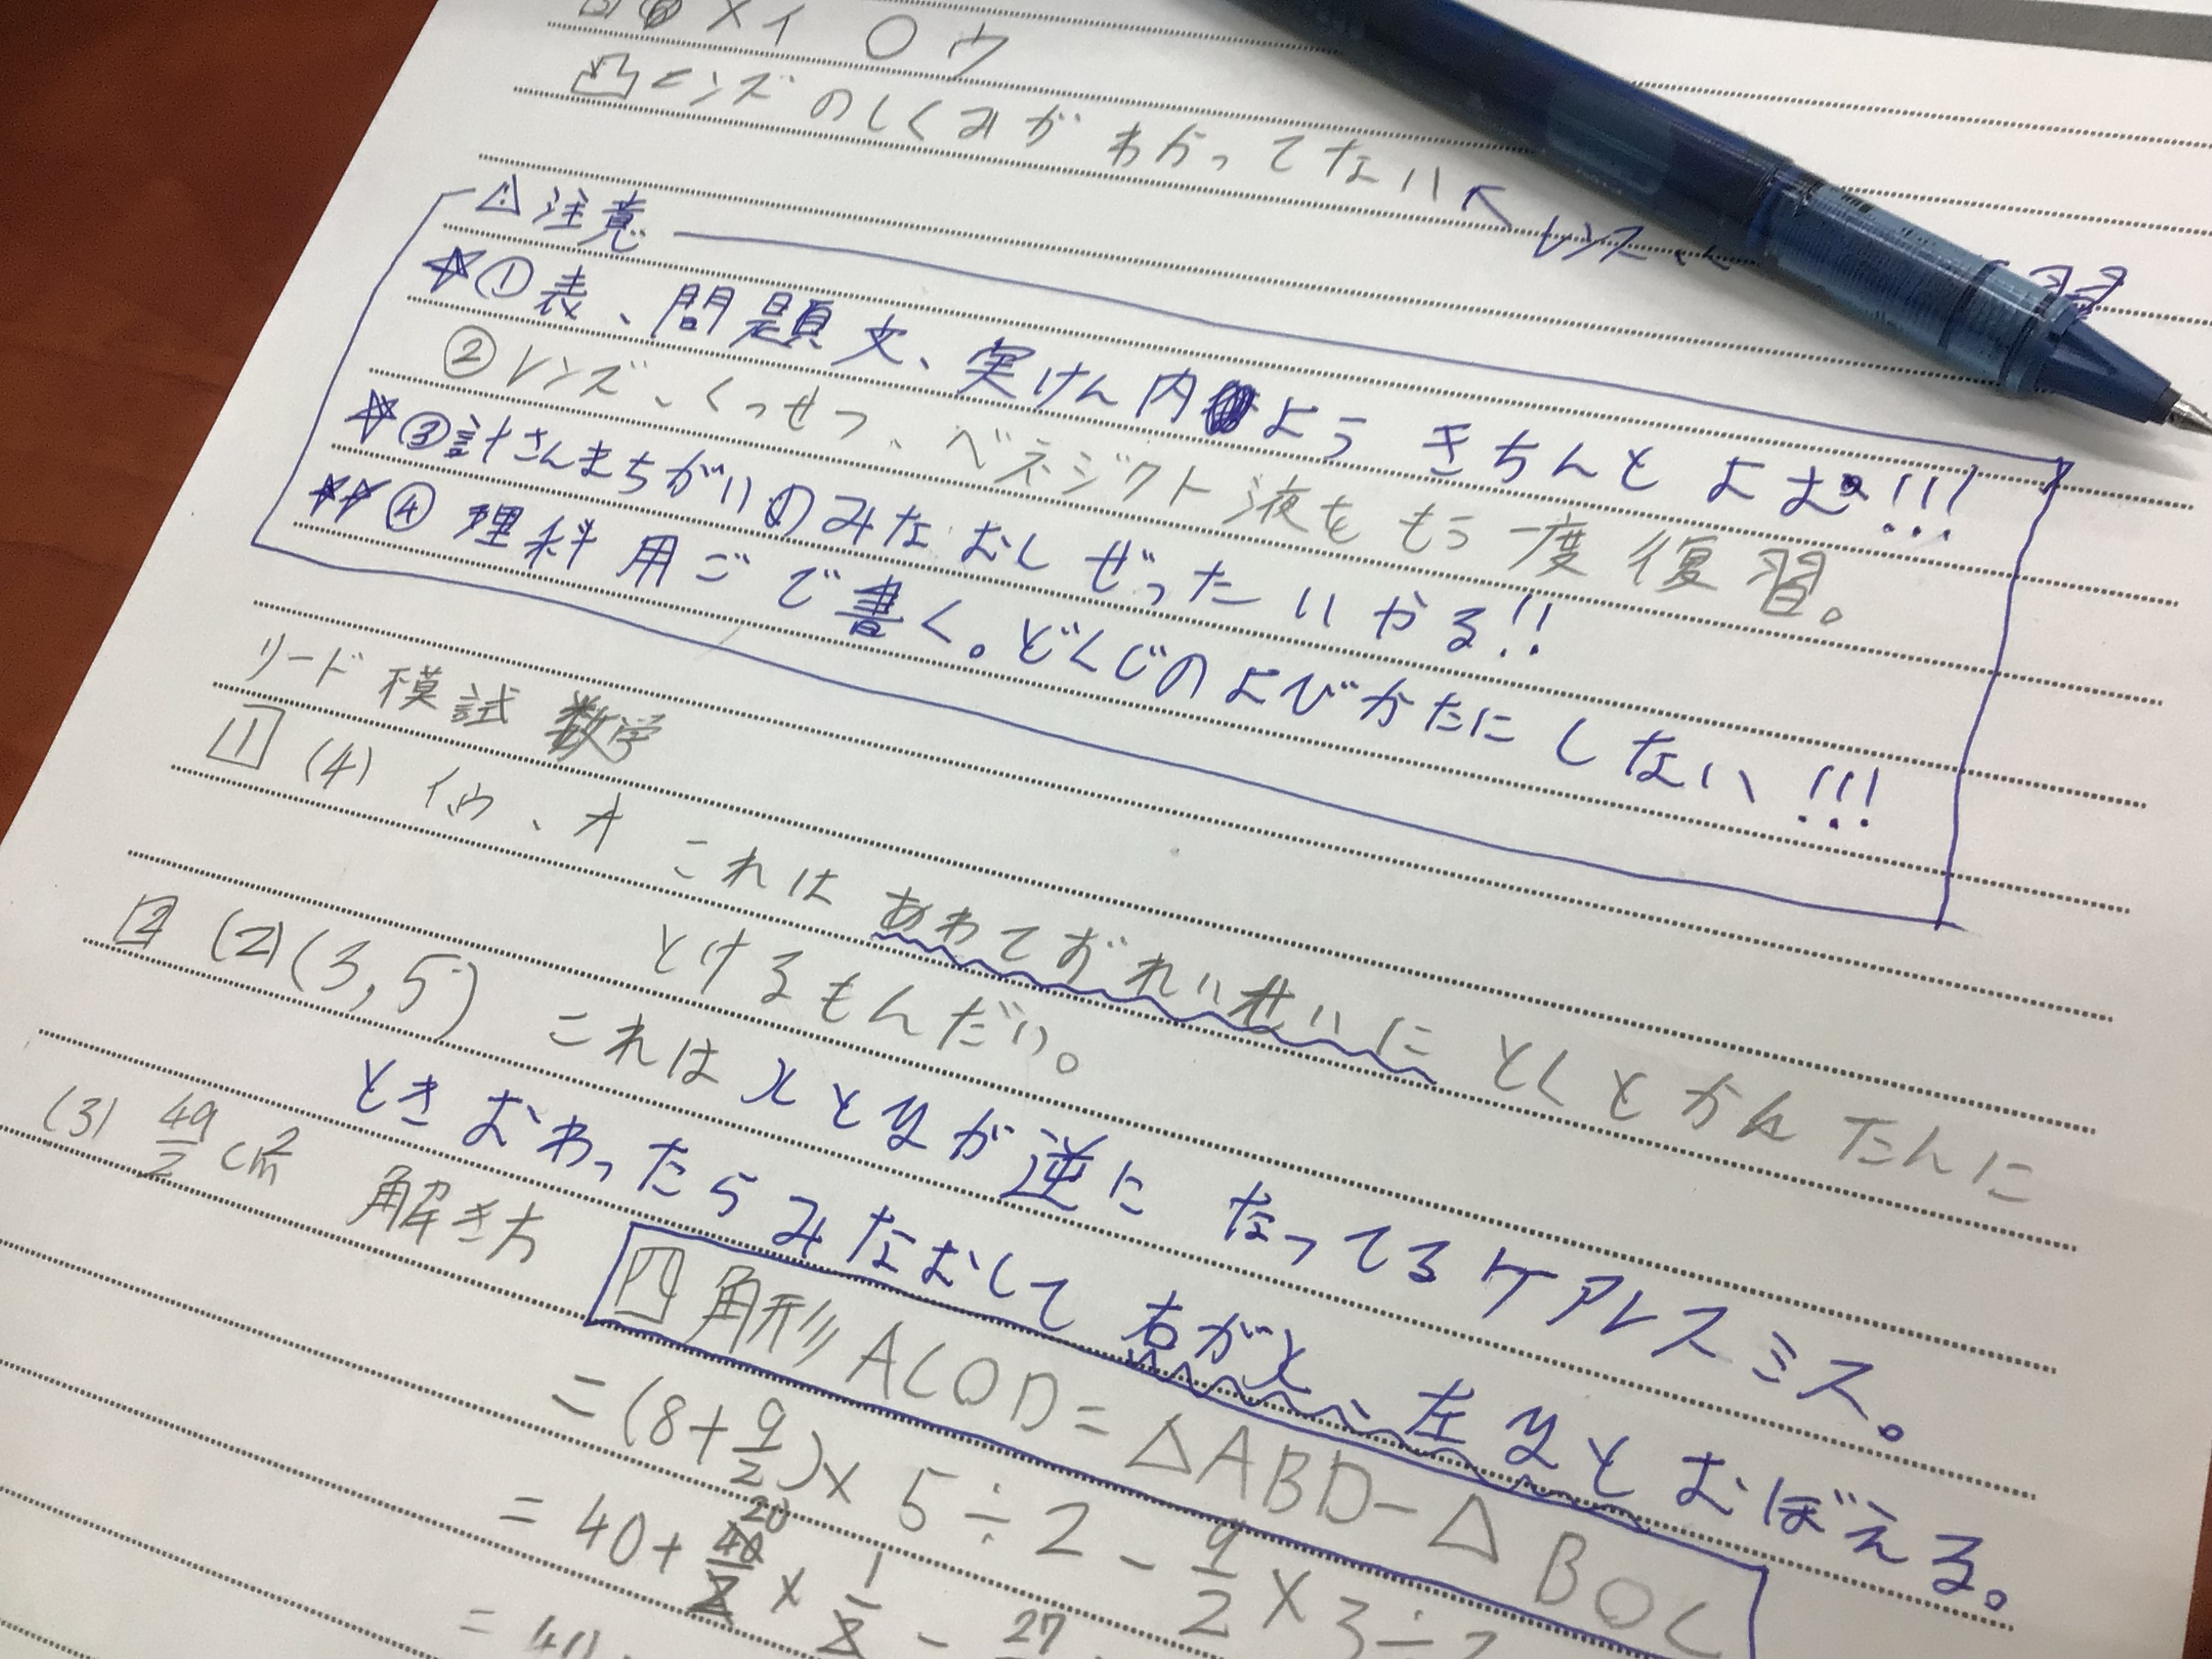 ×イ ○ ウ
凸レンズのしくみが わかってない ↖ レンズ 習
⚠注意
☆① 表、問題文、実けん内よう きちんと よむ!!!
② レンズ、くっせつ、ベネジクト液をもう一度復習。
☆③計さんまちがいのみなおし ぜったいやる!!
☆☆④ 理科用ごで書く。どくじのよびかたにしない!!!
リード模試 数学
1 (4) イ,ウ、オ これは あわてずれいせいに とくとかんたんに
とけるもんだい。
2 (2)(3,5) これは xとyが逆に なってるケアレスミス。
ときおわったらみなおして 右がx、左yとおぼえる。
(3) 49/2 cm² 解き方
四角形ACOD=△ABD-△BOC
=(8+9/2)×5÷2-9/2×3÷2
=40+ 20 × 1/2 - 27
= 40